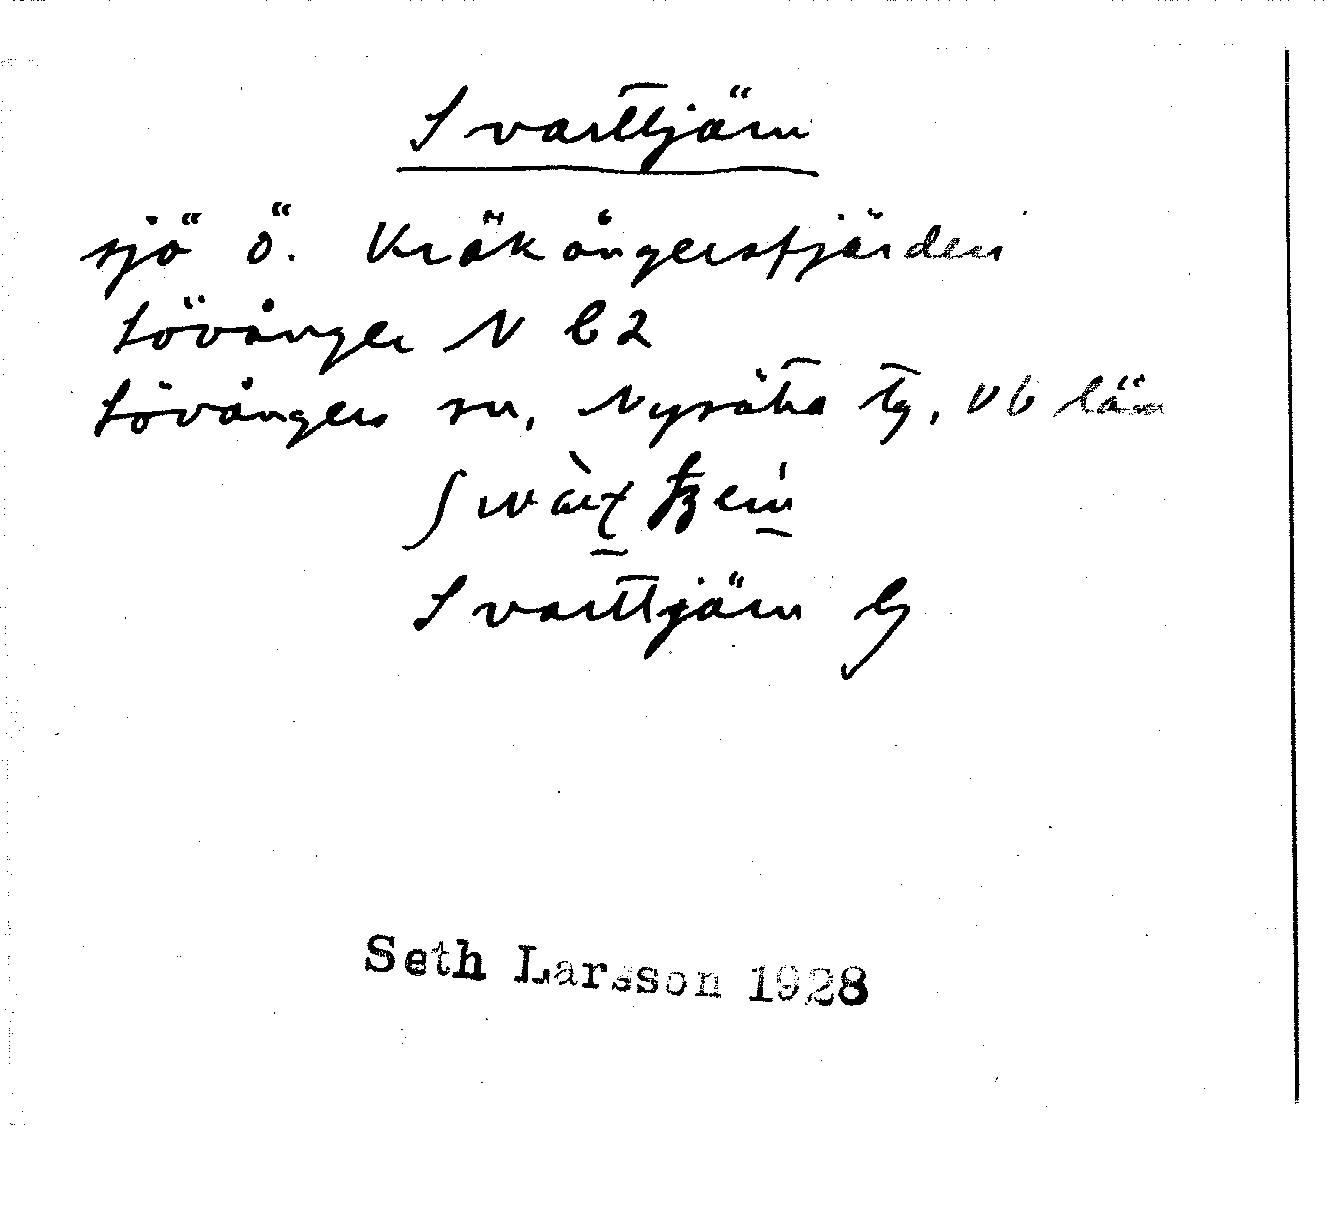 Svarttjärn
sjö ö. Kräkångersfjärden
Lövånger N b2
Lövångers sn, Nysätra tg, Vb län
Svarttjärn
Seth Larsson 1928